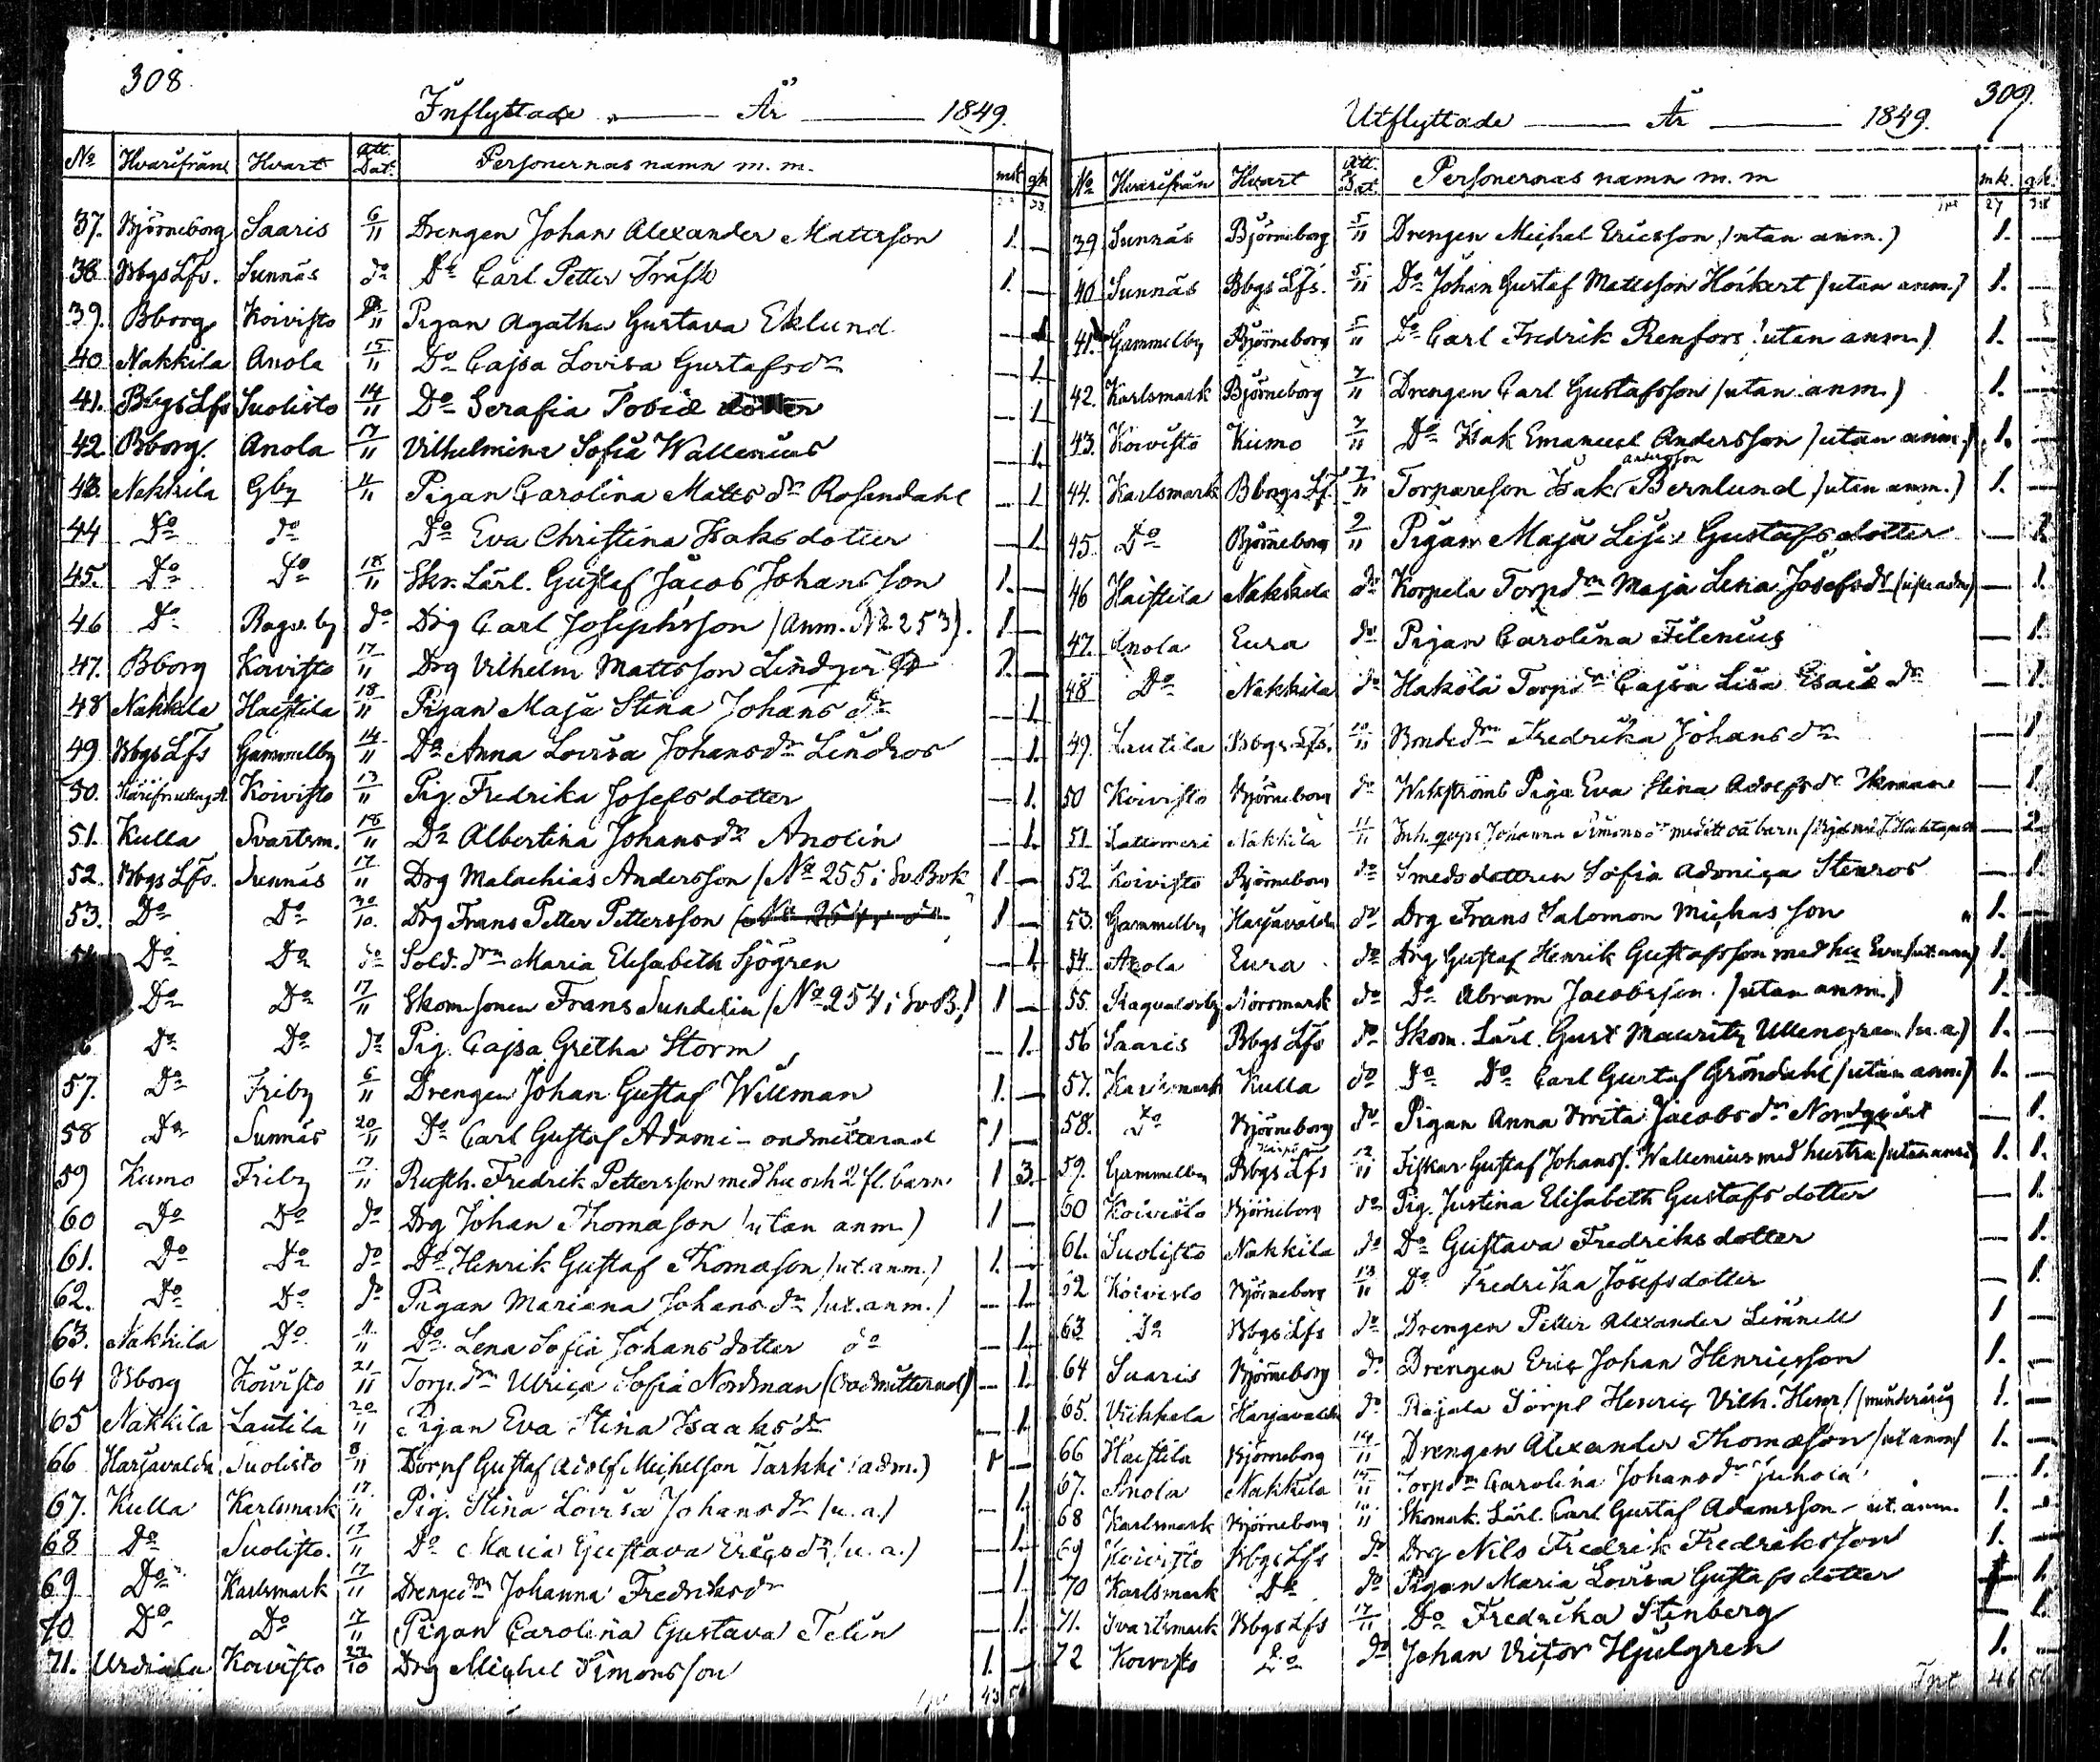 308
Inflyttade År 1849.
No Hvarifrån Hvart Att. Dat. Personernas namn m. m. mk qk
37. Björneborg Saaris 6/11 Drengen Johan Alexander Mattsson 1. —
38 Bbgs Lfs. Sunnäs do Do Carl Petter Träsk 1. —
39. Bborg Koivisto 11 Pigan Agatha Gustava Eklund — 1
40 Nakkila Anola 15/11 Do Cajsa Lovisa Gustafsdr — 1.
41. Bbgs Lfs Suolisto 14/11 Do Serafia Tobiæ dotter — 1
42 Bborg. Anola 17/11 Vilhelmina Sofia Wallenius — 1.
43. Nakkila Gby 11/11 Pigan Carolina Matts dr Rosendahl — 1
44 Do do Do Eva Christina Isaksdotter — 1.
45. Do Do 18/11 Skr. Lärl. Gustaf Jacob Johansson 1. —
46 Do Ragv. by do Drg Carl Josephsson (Anm. No 253). 1 —
47. Bborg Koivisto 17/11 Drg Vilhelm Mattsson Lindqvist 1. —
48 Nakkila Haistila 18/11 Pigan Maja Stina Johans dr — 1.
49 Bbgs Lfs Gammelby 14/11 Do Anna Lovisa Johansdr Lindros — 1.
50. Koivisto 13/11 Pig. Fredrika Josefsdotter — 1.
51. Kulla Svartsm. 18/11 Do Albertina Johansdr Anolin — 1.
52. Bbgs Lfs. Sunnäs 17/11 Drg Malachias Andersson (No 255 i Sv Bok 1 —
53. Do Do 30/10. Drg Frans Petter Pettersson (No 254, do 1 —
Do Do do Sold. drn Maria Elisabeth Sjögren — 1.
Do Do 17/11 Skom. sonen Frans Sundelin (No 254 i Sv B.) 1 —
Do Do do Pig. Cajsa Gretha Storm — 1.
57. Do Friby 6/11 Drengen Johan Gustaf Willman 1. —
58 Do Sunnäs 20/11 Do Carl Gustaf Adami - oadmitterad 1 —
59 Kumo Friby 17/11 Rusth. Fredrik Pettersson med hu och 2 fl. barn. 1 3.
60 Do Do do Drg Johan Thomasson (utan anm.) 1 —
61. Do Do do Do Henrik Gustaf Thomasson (ut. anm.) 1. —
62. Do Do do Pigan Mariana Johans dr (ut. anm.) — 1.
63. Nakkila Do 11/11 Do Lena Sofia Johansdotter do — 1.
64 Bborg Koivisto 21/11 Torp. drn Ulrica Sofia Nordman (Oadmitterad) — 1.
65 Nakkila Lautila 20/11 Pigan Eva Stina Isaaks dr — 1.
66 Harjavalda Suolisto 8/11 Torps Gustaf Adolf Michelson Tarkki (adm.) 1 —
67. Kulla Karlsmark 17/11 Pig. Stina Lovisa Johans dr (u. a.) — 1.
68 Do Suolisto. 17/11 Do Maria Gustava Ericsdr (u. a.) — 1.
69 Do Karlsmark 17/11 Drengedrn Johanna Fredriksdr — 1.
70 Do Do 17/11 Pigan Carolina Gustava Telin — 1.
71. Urdiala Koivisto 22/10 Drg Michel Simonsson 1. —
43
309.
Utflyttade År 1849.
No Hvarifrån Hvart Att. Dat. Personernas namn m. m mk. qk.
39 Sunnäs Björneborg 5/11 Drengen Michel Ericsson (utan anm.) 1. —
40 Sunnäs Bbgs Lfs. 5/11 Do Johan Gustaf Mattsson Höckert (utan anm.) 1. —
41. Gammelby Björneborg 5/11 Do Carl Fredrik Renfors (utan anm.) 1. —
42. Karlsmark Björneborg 7/11 Drengen Carl Gustafsson (utan anm.) 1. —
43. Koivisto Kumo 7/11 Do Isak Emanuel Andersson (utan anm.) 1. —
44. Karlsmark Bborgs Lf. 7/11 Torparson Isak Andersson Bernlund (utan anm.) 1. —
45. Do Björneborg 9/11 Pigan Maja Lisa Gustafsdotter — 1.
46 Haistila Nakkila do Korpela Torpdrn Maja Lena Josefsdr — 1.
47. Anola Eura do Pigan Carolina Filenius — 1.
48 Do Nakkila do Hakola Torp drn Cajsa Lisa Esaiæ dr — 1.
49. Lautila Bbgs Lfs. 10/11 Bondedrn Fredrika Johans dr — 1
50 Koivisto Björneborg do Wikströms Piga Eva Stina Adolfsdr Ekman — 1.
51. Lattomeri Nakkila 11/11 Inh. qvps Johanna Simonsdr med ett oä barn — 2.
52. Koivisto Björneborg do Smedsdottren Sofia Adonica Stenros — 1.
53. Gammelby Harjavalda do Drg Frans Salomon Michasson 1. —
54. Anola Eura do Drg Gustaf Henrik Gustafsson med hu Eva (ut. anm) 1.
55. Ragvaldsby Norrmark do Do Abram Jacobsson. (utan anm.) 1. —
56 Saaris Bbgs Lfs do Skom. Lärl. Gust Mauritz Ullengren (u. a.) 1. —
57. Karlsmark Kulla do Do Do Carl Gustaf Gröndahl (utan anm.) 1. —
58. Do Björneborg do Pigan Anna Brita Jacobsdr Nordqvist — 1.
59. Gammelby Bbgs Lfs 12/11 Fiskar Gustaf Johanss. Wallenius med hustru (utan anm) 1. 1.
60 Koivisto Björneborg do Pig. Justina Elisabeth Gustafsdotter — 1.
61. Suolisto Nakkila do Do Gustava Fredriksdotter — 1.
62 Koivisto Björneborg 13/11 Do Fredrika Josefsdotter — 1.
63 Do Bbgs Lfs do Drengen Petter Alexander Limnell 1 —
64 Saaris Björneborg do Drengen Eric Johan Henricsson 1. —
65. Vikkala Harjavalda do Rajala Torps Henric Vilh. Henr. (minderårig 1. —
66 Haistila Björneborg 14/11 Drengen Alexander Thomasson (ut anm) 1. —
67. Anola Nakkila 15/11 Torpdrn Carolina Johansdr Juhola — 1.
68 Karlsmark Björneborg 11 Skomak. Lärl. Carl Gustaf Adamsson - ut. anm. 1. —
69 Koivisto Bbgs Lfs do Drg Nils Fredrik Fredriksson 1. —
70 Karlsmark Do do Pigan Maria Lovisa Gustafsdotter 1.
71. Svartsmark Bbgs Lfs 17/11 Do Fredrika Stenberg — 1.
72 Koivisto Do do Johan Victor Hjulgren 1. —
Tpt 46 56